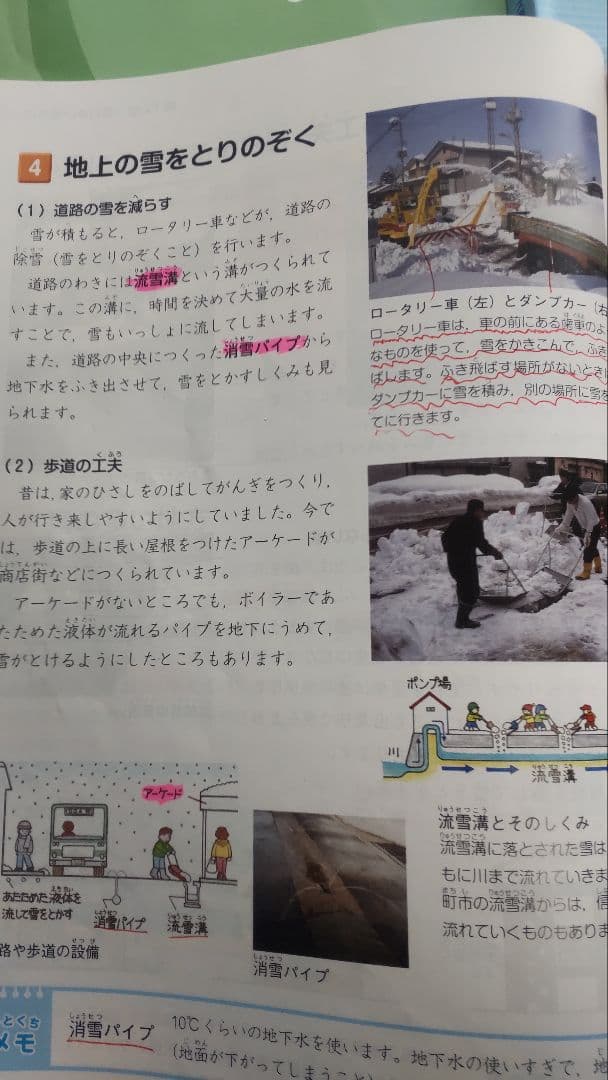 4 地上の雪をとりのぞく
(1) 道路の雪を減らす
雪が積もると，ロータリー車などが，道路の
除雪（雪をとりのぞくこと）を行います。
道路のわきには流雪溝という溝がつくられて
います。この溝に，時間を決めて大量の水を流
すことで，雪もいっしょに流してしまいます。
また，道路の中央につくった消雪パイプから
地下水をふき出させて，雪をとかすしくみも見
られます。
(2) 歩道の工夫
昔は，家のひさしをのばしてがんぎをつくり，
人が行き来しやすいようにしていました。今で
は，歩道の上に長い屋根をつけたアーケードが
商店街などにつくられています。
アーケードがないところでも，ボイラーであ
たためた液体が流れるパイプを地下にうめて，
雪がとけるようにしたところもあります。
ロータリー車（左）とダンプカー（右
ロータリー車は，車の前にある歯車のよ
なものを使って，雪をかきこんで，ふき
ばします。ふき飛ばす場所がないときは
ダンプカーに雪を積み，別の場所に雪を
てに行きます。
ポンプ場
川
流雪溝
流雪溝とそのしくみ
流雪溝に落とされた雪は
もに川まで流れていきま
町市の流雪溝からは，信
流れていくものもありま
アーケード
あたためた液体を
流して雪をとかす
消雪パイプ
流雪溝
路や歩道の設備
消雪パイプ
とくち
メモ
消雪パイプ
10℃くらいの地下水を使います。地下水の使いすぎで，地
（地面が下がってしまうこと）